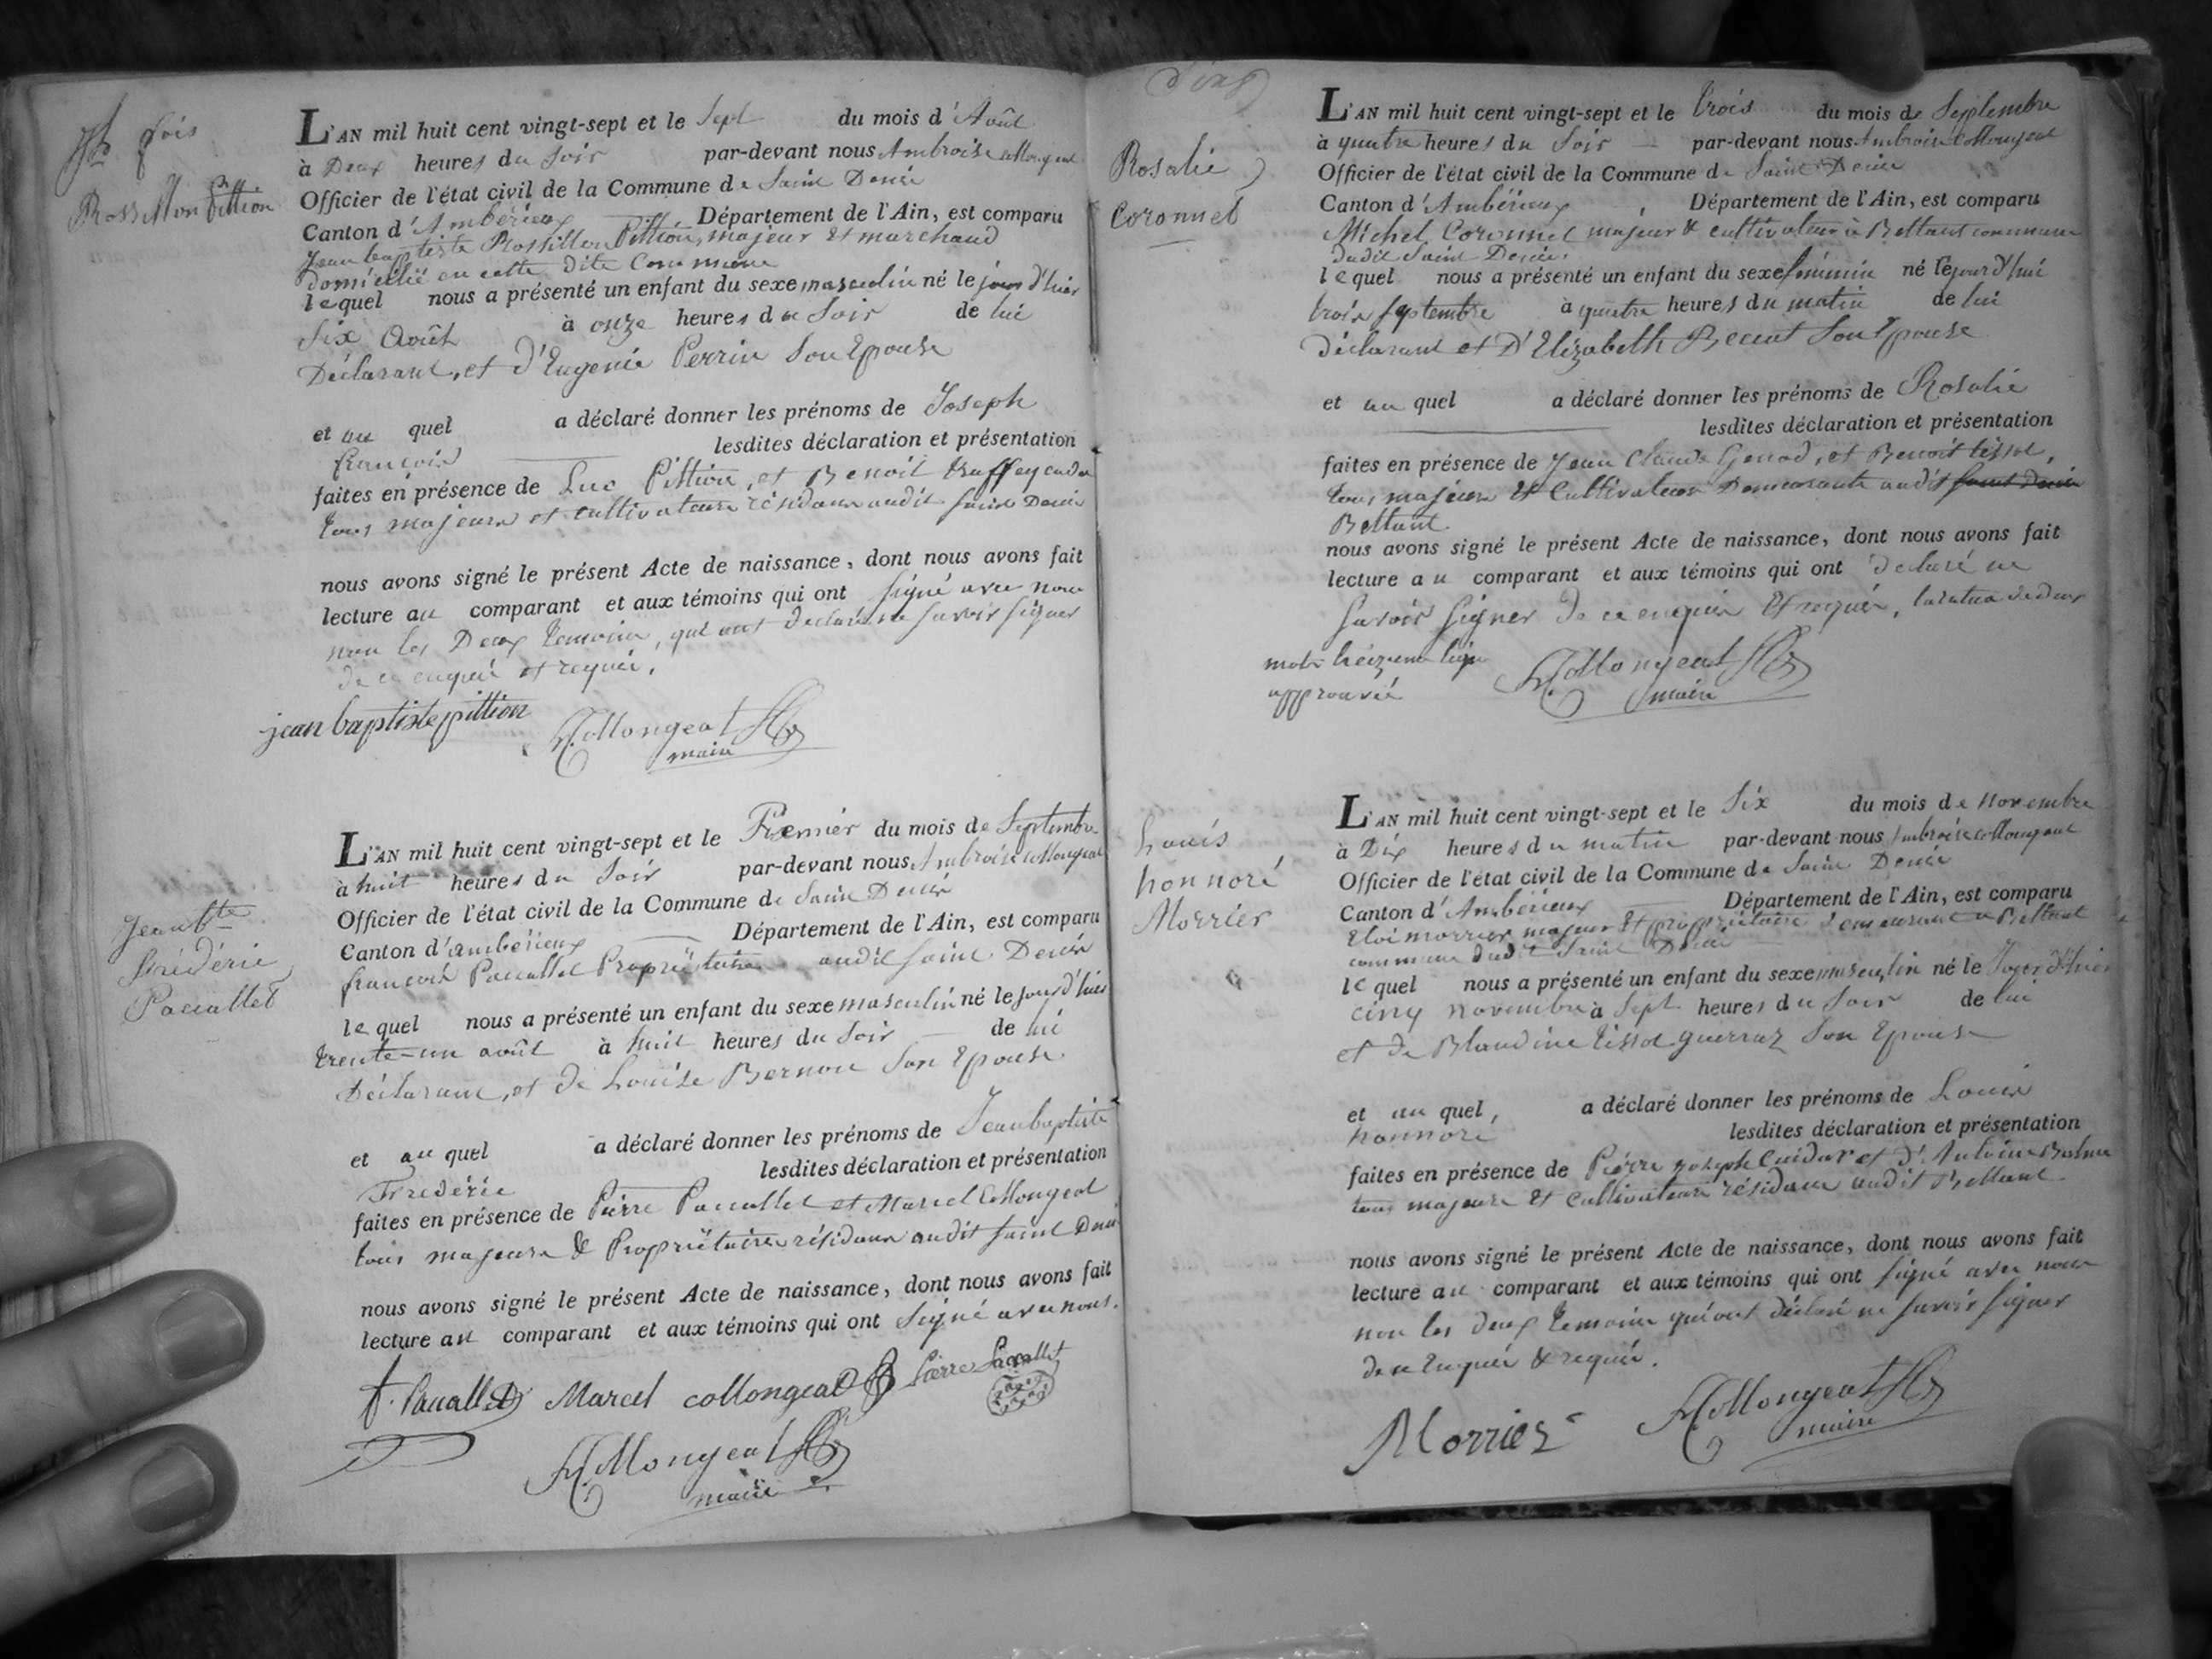 Jh fois
Rossillon Pittion
L'AN mil huit cent vingt-sept et le Sept du mois d'Août
à Deux heures du Soir par-devant nous Ambroise Collongeat
Officier de l'état civil de la Commune de Saint Denis
Canton d'Ambérieux Département de l'Ain, est comparu
Jean baptiste Rossillon Pittion, majeur et marchand
domicilié en cette dite Commune
lequel nous a présenté un enfant du sexe masculin né le jour d'hier
Six Août à onze heures du Soir de lui
Déclarant, et d'Eugenie Perrin Son Epouse
et au quel a déclaré donner les prénoms de Joseph
francois lesdites déclaration et présentation
faites en présence de Luc Pittion, et Benoit
tous majeurs et cultivateurs résidans audit saint Denis
nous avons signé le présent Acte de naissance, dont nous avons fait
lecture au comparant et aux témoins qui ont signé avec nous
non les Deux temoins, qui ont declaré ne savoir signer
de ce enquis et requis.
jean baptiste pittion Collongeat
maire
Jean bte
frédéric
Pacallet
L'AN mil huit cent vingt-sept et le Premier du mois de Septembre
à huit heures du Soir par-devant nous Ambroise Collongeat
Officier de l'état civil de la Commune de Saint Denis
Canton d'ambérieux Département de l'Ain, est comparu
francois Pacallet Propriétaire audit saint Denis
lequel nous a présenté un enfant du sexe masculin né le jour d'hier
trente-un août à huit heures du Soir de lui
Déclarant, et de Louise Bernou Son Epouse
et au quel a déclaré donner les prénoms de Jean baptiste
Frederic lesdites déclaration et présentation
faites en présence de Pierre Pacallet et Marcel Collongeat
tous majeurs & Propriétaires résidans audit saint Denis
nous avons signé le présent Acte de naissance, dont nous avons fait
lecture au comparant et aux témoins qui ont Signé avec nous.
f. Pacallet Marcel collongeat Pierre Pacallet
Collongeat
maire
Rosalie
Coronnet
L'AN mil huit cent vingt-sept et le trois du mois de Septembre
à quatre heures du Soir par-devant nous Ambroise Collongeat
Officier de l'état civil de la Commune de Saint Denis
Canton d'Ambérieux, Département de l'Ain, est comparu
Michel Coronnet majeur & cultivateur à Bettant commune
dudit Saint Denis.
lequel nous a présenté un enfant du sexe féminin né le jour d'hui
trois septembre à quatre heures du matin de lui
déclarant et D'Elizabeth Son Epouse
et au quel a déclaré donner les prénoms de Rosalie
lesdites déclaration et présentation
faites en présence de Jean Claude Genod, et Benoit tissot,
tous majeurs et Cultivateurs Demeurants audit saint Denis
Bettant.
nous avons signé le présent Acte de naissance, dont nous avons fait
lecture au comparant et aux témoins qui ont declaré ne
savoir signer de ce enquis et requis, la rature de deux
mots treizieme ligne
approuvée
Collongeat
maire
Louis
honnoré
Morrier
L'AN mil huit cent vingt-sept et le Six du mois de novembre
à Dix heures du matin par-devant nous Ambroise Collongeat
Officier de l'état civil de la Commune de Saint Denis
Canton d'Ambérieux Département de l'Ain, est comparu
Eloi morrier majeur et propriétaire demeurant à Bettant
commune dudit Saint Denis
lequel nous a présenté un enfant du sexe masculin né le Jour d'hier
cinq novembre à Sept heures du Soir de lui
et de Blandine tissot guerraz Son Epouse
et au quel, a déclaré donner les prénoms de Louis
honnoré lesdites déclaration et présentation
faites en présence de Pierre joseph Cuidar et d'Antoine
tous majeurs et Cultivateurs résidans audit Bettant.
nous avons signé le présent Acte de naissance, dont nous avons fait
lecture au comparant et aux témoins qui ont signé avec nous
non les deux temoins qui ont déclaré ne savoir signer
de ce Enquis & requis.
Morrier Collongeat
maire